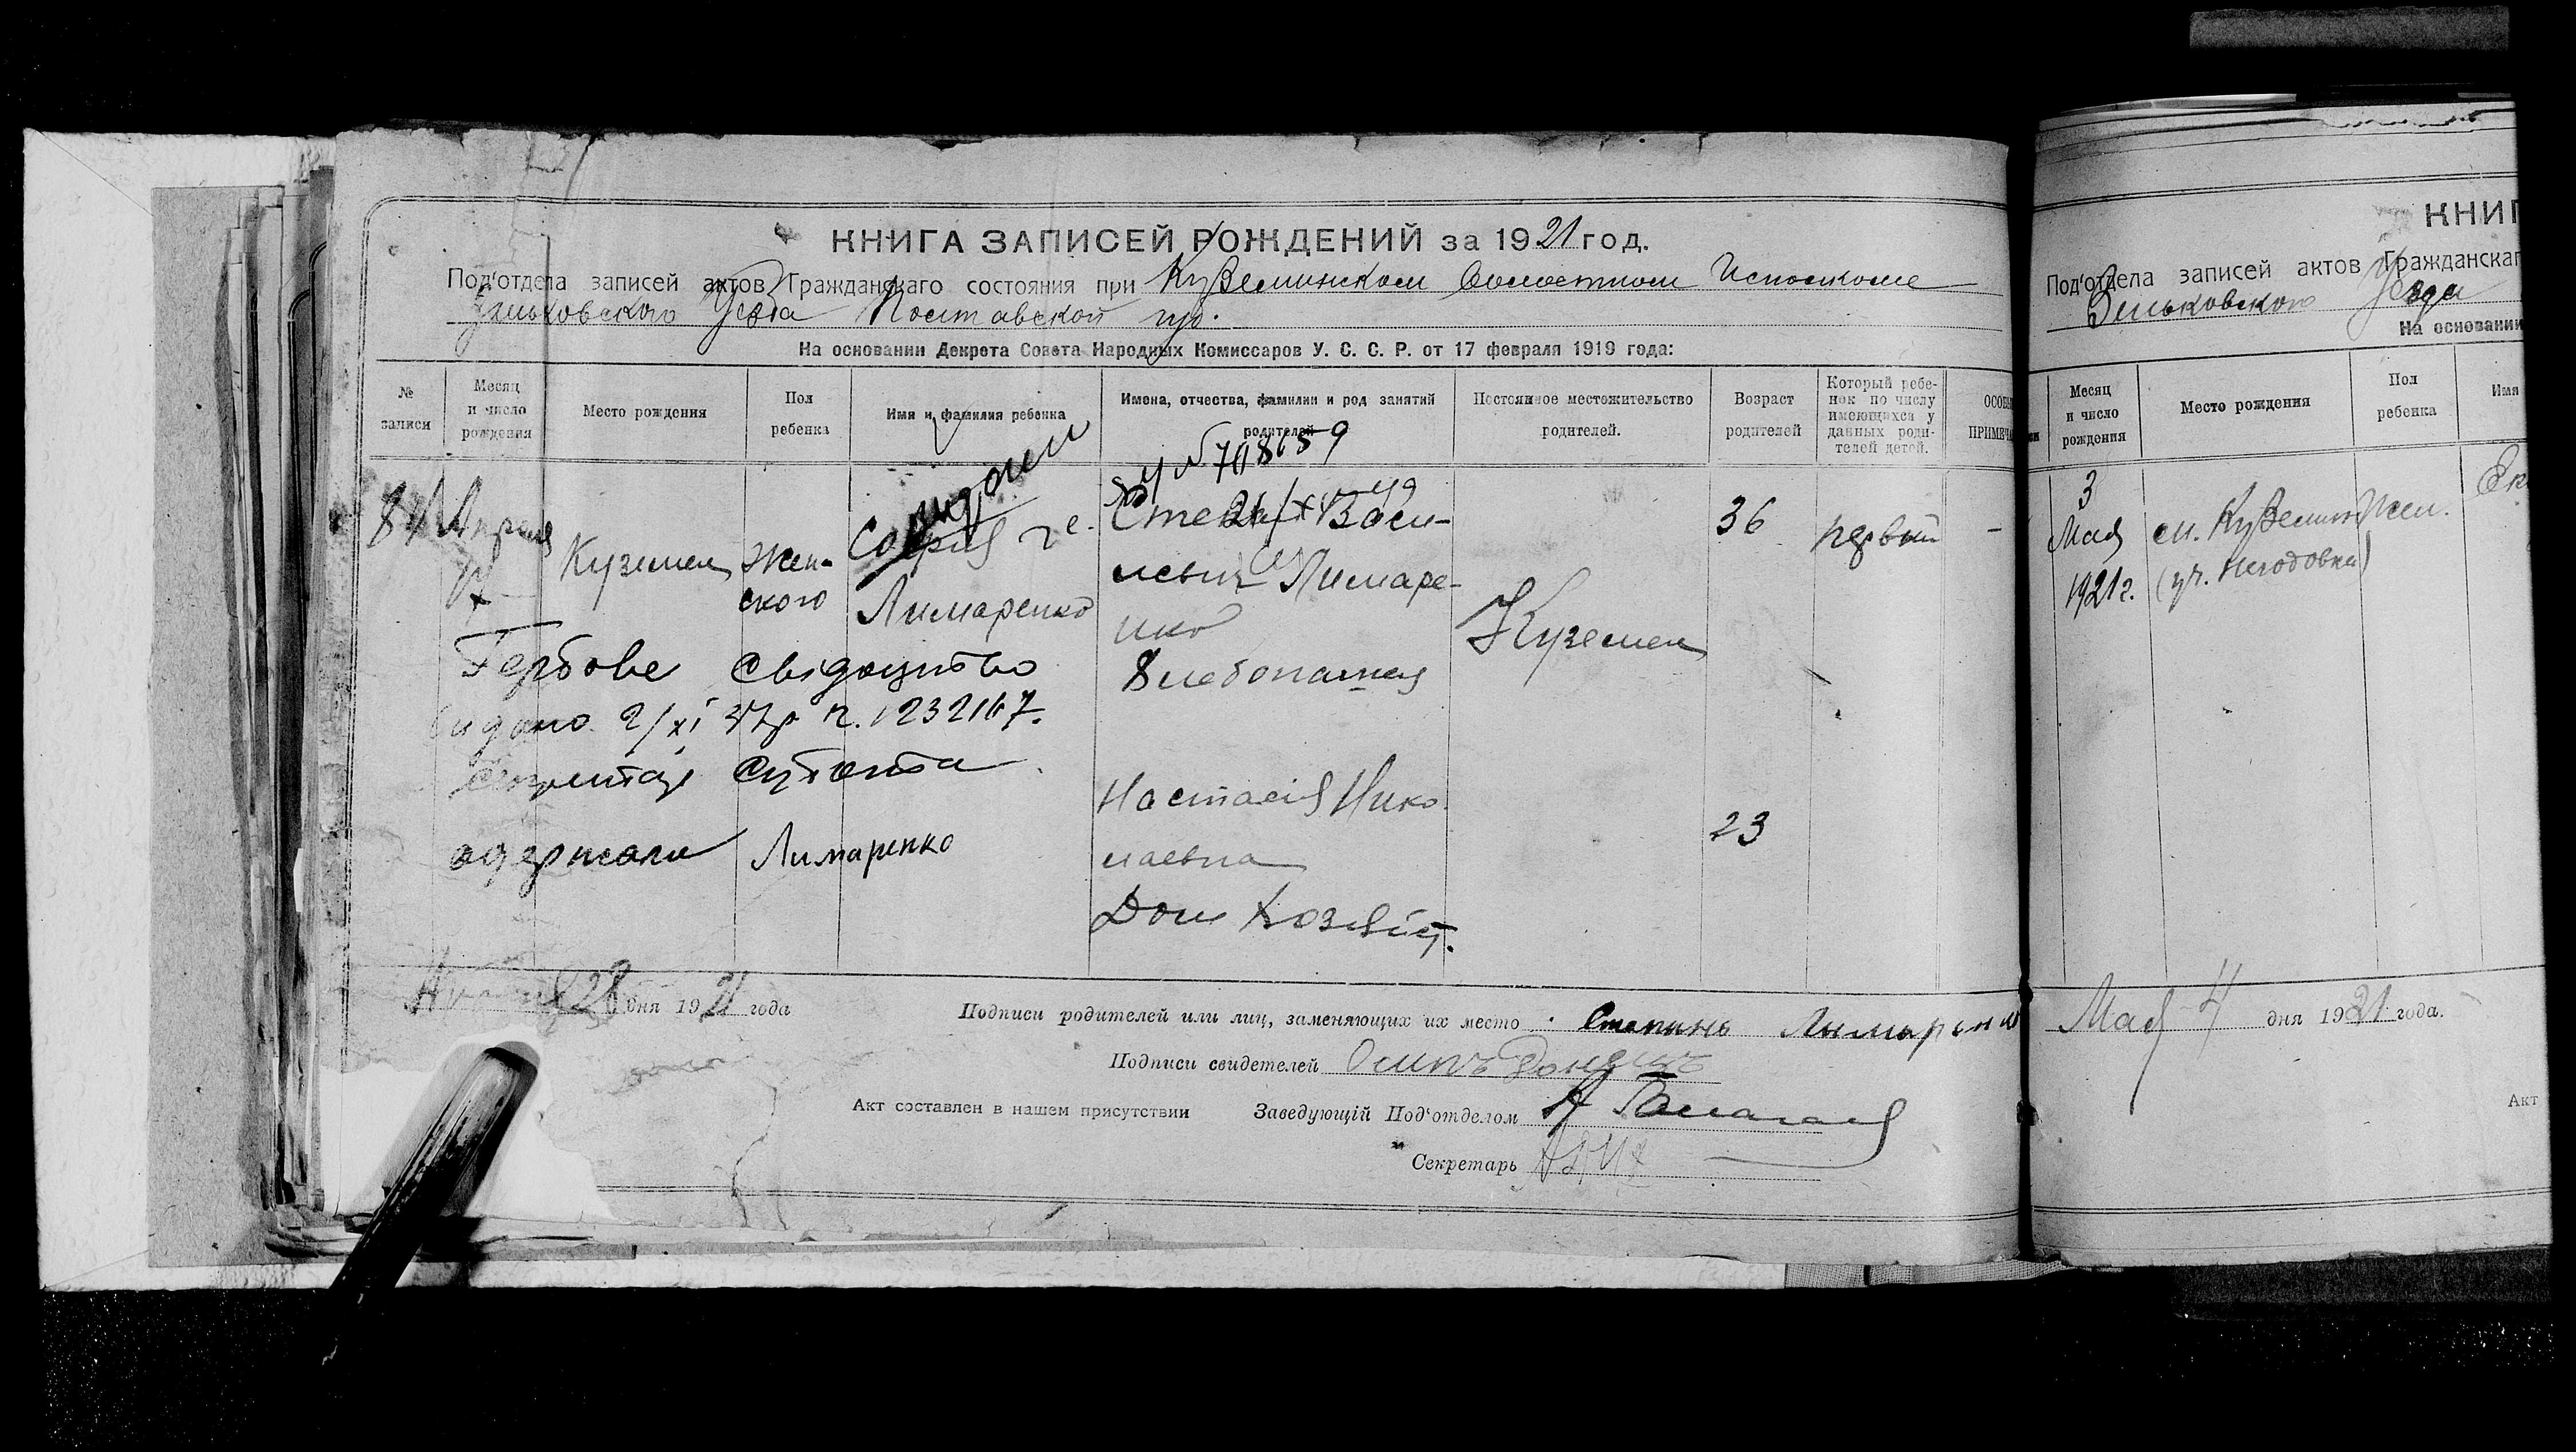 КНИГА ЗАПИСЕЙ РОЖДЕНИЙ за 1921 год.
Под'отдела записей актов Гражданскаго состояния при Куземинском Волостном Исполкоме
Зиньковского Уезда Полтавской губ.
На основании Декрета Совета Народных Комиссаров У. С. С. Р. от 17 февраля 1919 года:
№ записи
Месяц и число рождения
Место рождения
Пол ребенка
Имя и фамилия ребенка
Имена, отчества, фамилии и род занятий родителей
Постоянное местожительство родителей.
Возраст родителей
Который ребенок по числу имеющихся у данных родителей детей.
ОСОБЫ
ПРИМЕЧА
84
Апреля
Куземен
Жен-
ского
София
Лимаренко
видани
№ 708659
Степан Васи-
льевич Лимаре-
нко
Хлебопашец
Куземен
36
первый
–
Гербове свідоцтво
видано 2/XI 37р ч. 1232167.
Настасія Нико-
лаевна
Дом хозяйст.
23
одержала Лимаренко
28 дня 1921 года
Подписи родителей или лиц, заменяющих их место Степань Лимаренко
Подписи свидетелей Осипъ
Акт составлен в нашем присутствии Заведующій Под'отделом
Секретарь
КНИГ
Под'отдела записей актов Гражданскаг
Зиньковского Уезда
На основании
Месяц и число рождения
Место рождения
Пол ребенка
Имя
3
Мая
1921г.
м. Куземин
Жен.
Мая 4 дня 1921 года.
Акт